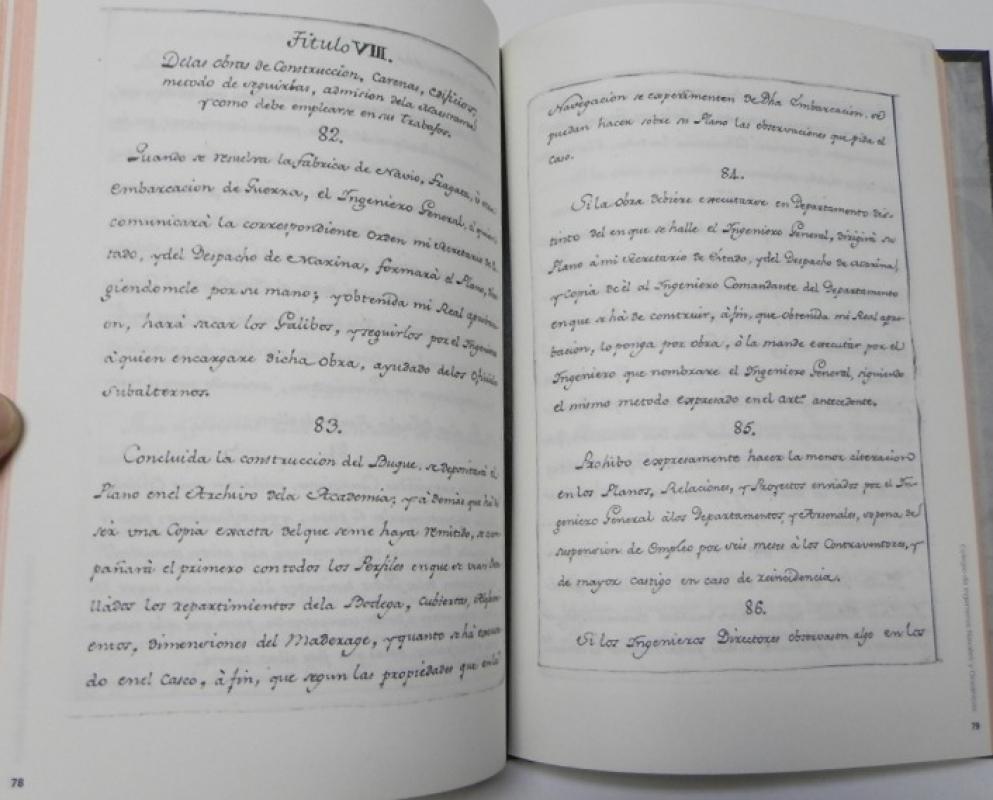 Titulo VIII.
Delas obras de Construccion, Carenas, Edificios,
metodo de seguirlas, admision dela Maestranza,
y como debe emplearse en sus Trabajos.
82.
Quando se resuelva la fabrica de Navio, Fragata, ò otra
Embarcacion de Guerra, el Ingeniero General, à quien
comunicarà la correspondiente Orden mi Secretario de Es-
tado, y del Despacho de Marina, formarà el Plano, diri-
giendomele por su mano; y obtenida mi Real aprobaci-
on, harà sacar los Galibos, y seguirlos por el Ingeniero
à quien encargare dicha Obra, ayudado delos Oficiales
Subalternos.
83.
Concluida la construccion del Buque, se depositarà el
Plano enel Archivo dela Academia; y à demàs que hà de
ser una Copia exacta del que seme haya remitido, acom-
pañarà el primero con todos los Perfiles en que se vean
llados los repartimientos dela Bodega, Cubiertas,
entos, dimensiones del Maderage, y quanto se hà executa-
do enel Casco, à fin, que segun las propiedades que enla
78
Navegacion se experimenten de Dha Embarcacion, se
puedan hacer sobre su Plano las observaciones que pida el
caso.
84.
Si la Obra debiere executarse en Departamento dis-
tinto del en que se halle el Ingeniero General, dirigirà su
Plano à mi Secretario de Estado, y del Despacho de Marina,
y Copia de èl al Ingeniero Comandante del Departamento
en que se hà de construir, à fin, que obtenida mi Real apro-
bacion, lo ponga por obra, ò la mande executar por el
Ingeniero que nombrare el Ingeniero General, siguiendo
el mismo metodo expresado en el art.º antecedente.
85.
Prohibo expresamente hacer la menor alteracion
en los Planos, Relaciones, y Proyectos enviados por el In-
geniero General àlos Departamentos, y Arsenales, so pena de
suspension de Empleo por seis meses à los Contraventores, y
de mayor castigo en caso de reincidencia.
86.
Si los Ingenieros Directores observasen algo en los
Colegio de Ingenieros Navales y Oceánicos
79